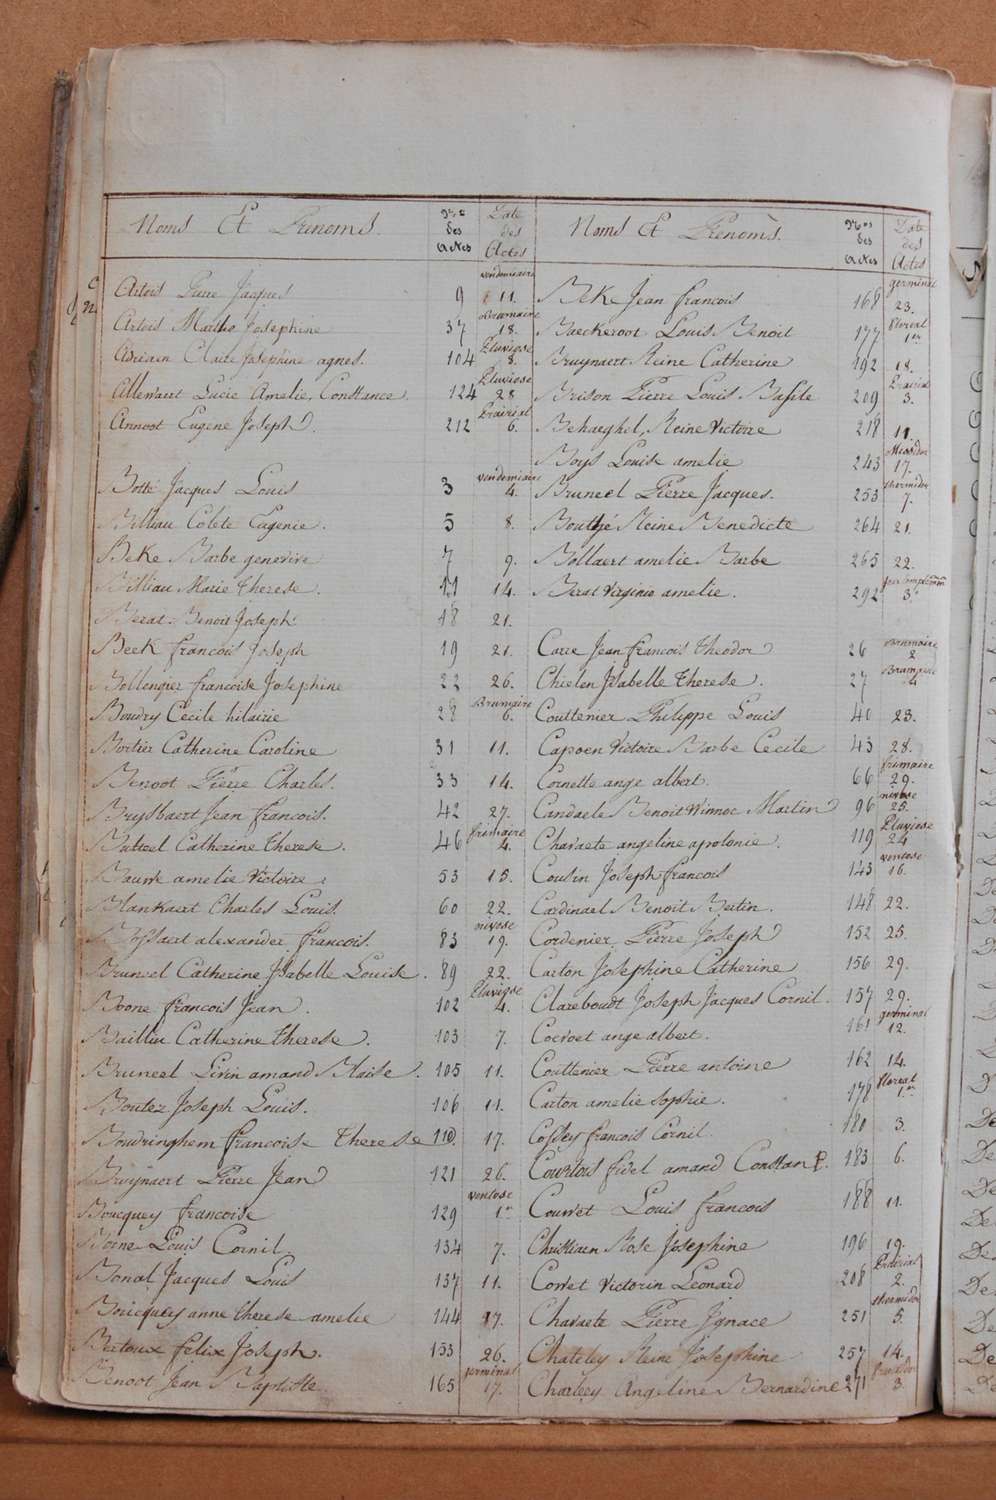 Noms Et Prenoms. Nros des Actes Date des Actes
Artois Piere Jacques 9 vendemiaire 11.
Artois Marthe Josephine 37 Brumaire 18.
Adriaen Claire Josephine agnes. 104 Pluviose 8.
Allewaert Lucie Amelie, Constance. 124 Pluviose 28
Annoot Eugene Joseph. 212 Prairial 6.
Botté Jacques Louis 3 vendemiaire 4.
Billiau Colete Eugenie. 5 8.
Beke Barbe genevive 7 9.
Billiau Marie Therese. 11 14.
Berat Benoit Joseph 18 21.
Beek francois Joseph 19 21.
Bollengier francoise Josephine 22 26.
Boudry Cecile hilairie 28 Brumaire 6.
Bortier Catherine Caroline 31 11.
Benoot Pierre Charles. 33 14.
Brysbaert Jean francois. 42 27.
Batteel Catherine Therese. 46 frimaire 4.
amelie Victoire. 53 15.
Blankaert Charles Louis. 60 22.
Bossaert alexander francois. 83 nivose 19.
Bruneel Catherine Isabelle Louise. 89 22.
Boone francois Jean. 102 Pluviose 4.
Baillieu Catherine Therese. 103 7.
Bruneel Livin amand Blaise. 105 11.
Boutez Joseph Louis. 106 11.
Boudringhem francoise Therese 110. 17.
Bruynaert Pierre Jean 121 26.
Boucquey francoise 129 ventose 1er
Borne Louis Cornil 134 7.
Bonal Jacques Louis 137 11.
Boucquey anne therese amelie 144 17.
Bertoux felix Joseph. 153 26.
Benoot Jean Baptiste 165 germinal 17.
Noms Et Prénoms. Nros des Actes Date des Actes
Beke Jean francois 168 germinal 23.
Baeckeroot Louis Benoit 177 floreal 1er
Bruynaert Reine Catherine 192 18.
Brison Pierre Louis Basile 209 Prairial 3.
Behaeghel, Reine Victoire 218 11.
Boys Louise amelie 243 Messidor 17.
Bruneel Pierre Jacques. 253 thermidor 7.
Bouthé Reine Benedicte 264 21.
Bollaert amelie Barbe 265 22.
Berat Virginie amelie. 292 3e
Carre Jean francois Theodor 26 Brumaire 2
Chielen Isabelle Therese. 27 Brumaire 4
Couttenier Philippe Louis 40 23.
Capoen Victoire Barbe Cecile 43 28.
Cornette ange albert. 66 frimaire 29.
Candaele Benoit Winnoc Martin 96 nivose 25.
Charaete angeline apolonie. 119 Pluviose 24
Cousin Joseph francois 143 ventose 16.
Cardinael Benoit Bertin. 148 22.
Cordenier Pierre Joseph 152 25.
Carton Josephine Catherine 156 29.
Clareboudt Joseph Jacques Cornil. 157 29.
Cocroet ange albert. 161 germinal 12.
Couttenier Pierre antoine 162 14.
Carton amelie sophie. 178 floreal 1er
Cossey francois Cornil. 180 3.
Courtois fidel amand Constan P. 183 6.
Couvret Louis francois 188 11.
Christiaen Rose Josephine 196 19.
Corvet Victorin Leonard 208 Prairial 2.
Charaete Pierre Ignace 251 thermidor 5.
Chateley Reine Josephine 257 14.
Charley Angeline Bernardine 271 fructidor 3.